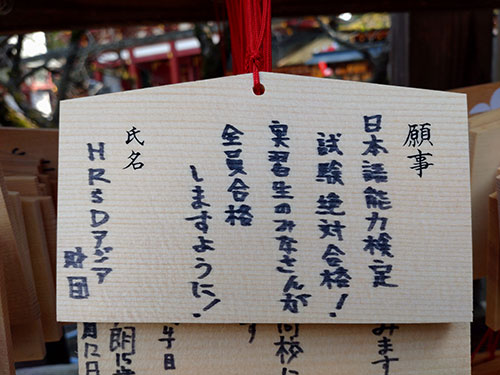 願事
日本語能力検定
試験絶対合格!
実習生のみなさんが
全員合格
しますように!
氏名
HRSDアジア
財団
みます
同校に
す
午日
朗15歳
月12日